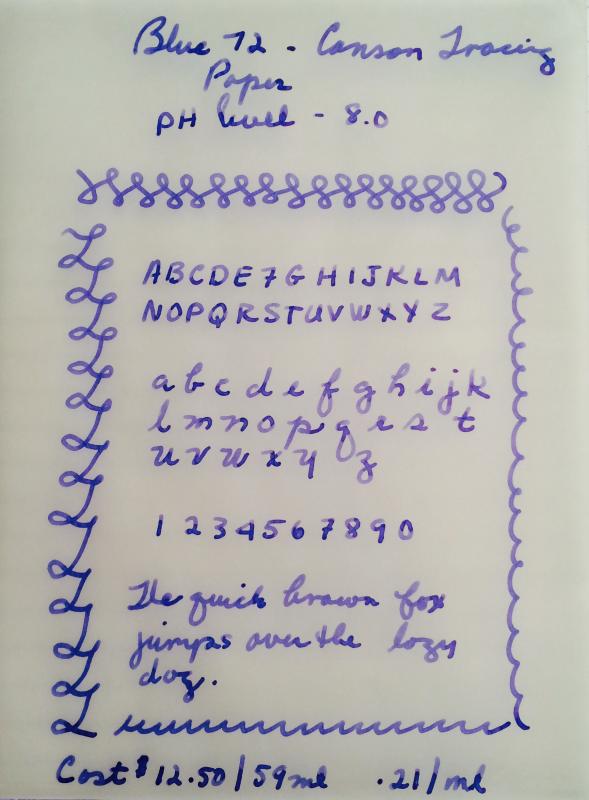 Blue 72 - Canson Tracing
Paper
PH level - 8.0
ABCDEFGHIJKLM
NOPQRSTUVWXYZ
abcdefghijk
lmnopqrst
uvwxyz
1234567890
The quick brown fox
jumps over the lazy
dog.
Cost $12.50/59ml .21/ml